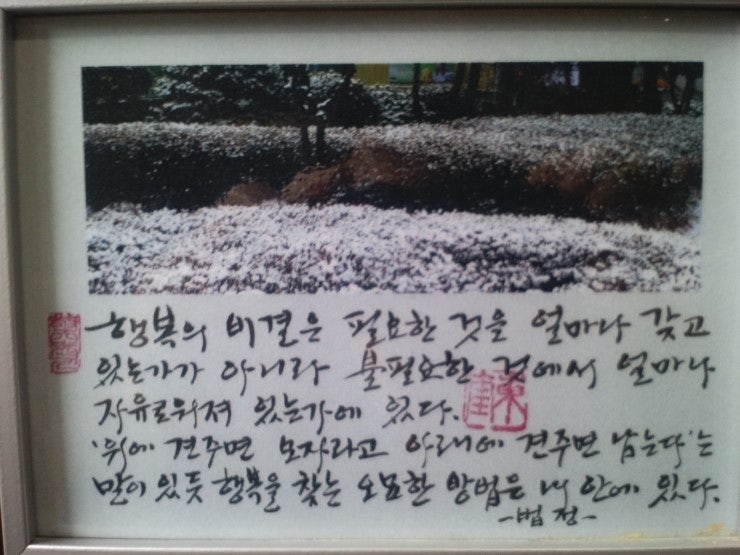 행복의 비결은 필요한 것을 얼마나 갖고
있는가가 아니라 불필요한 것에서 얼마나
자유로워져 있는가에 있다.
'위에 견주면 모자라고 아래에 견주면 남는다'는
말이 있듯 행복을 찾는 오묘한 방법은 내 안에 있다.
-법정-